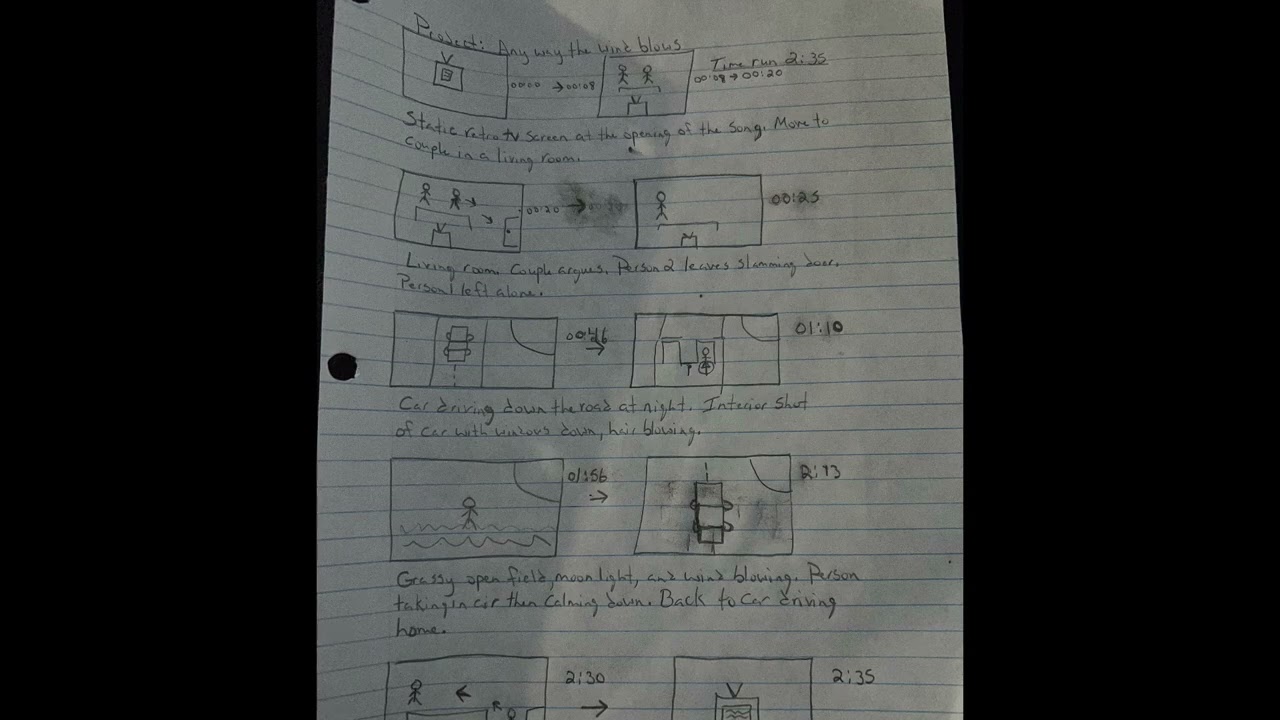 Project: Any way the wind blows
Time run 2:35
00:00 → 00:08
00:08 → 00:20
Static retro tv screen at the opening of the song. Move to
couple in a living room.
00:20 →
00:25
Living room. Couple argues. Person 2 leaves slamming door.
Person 1 left alone.
00:46 →
01:10
Car driving down the road at night. Interior shot
of car with windows down, hair blowing.
01:56 →
2:13
Grassy open field, moon light, and wind blowing. Person
taking in air then calming down. Back to car driving
home.
2:30 →
2:35